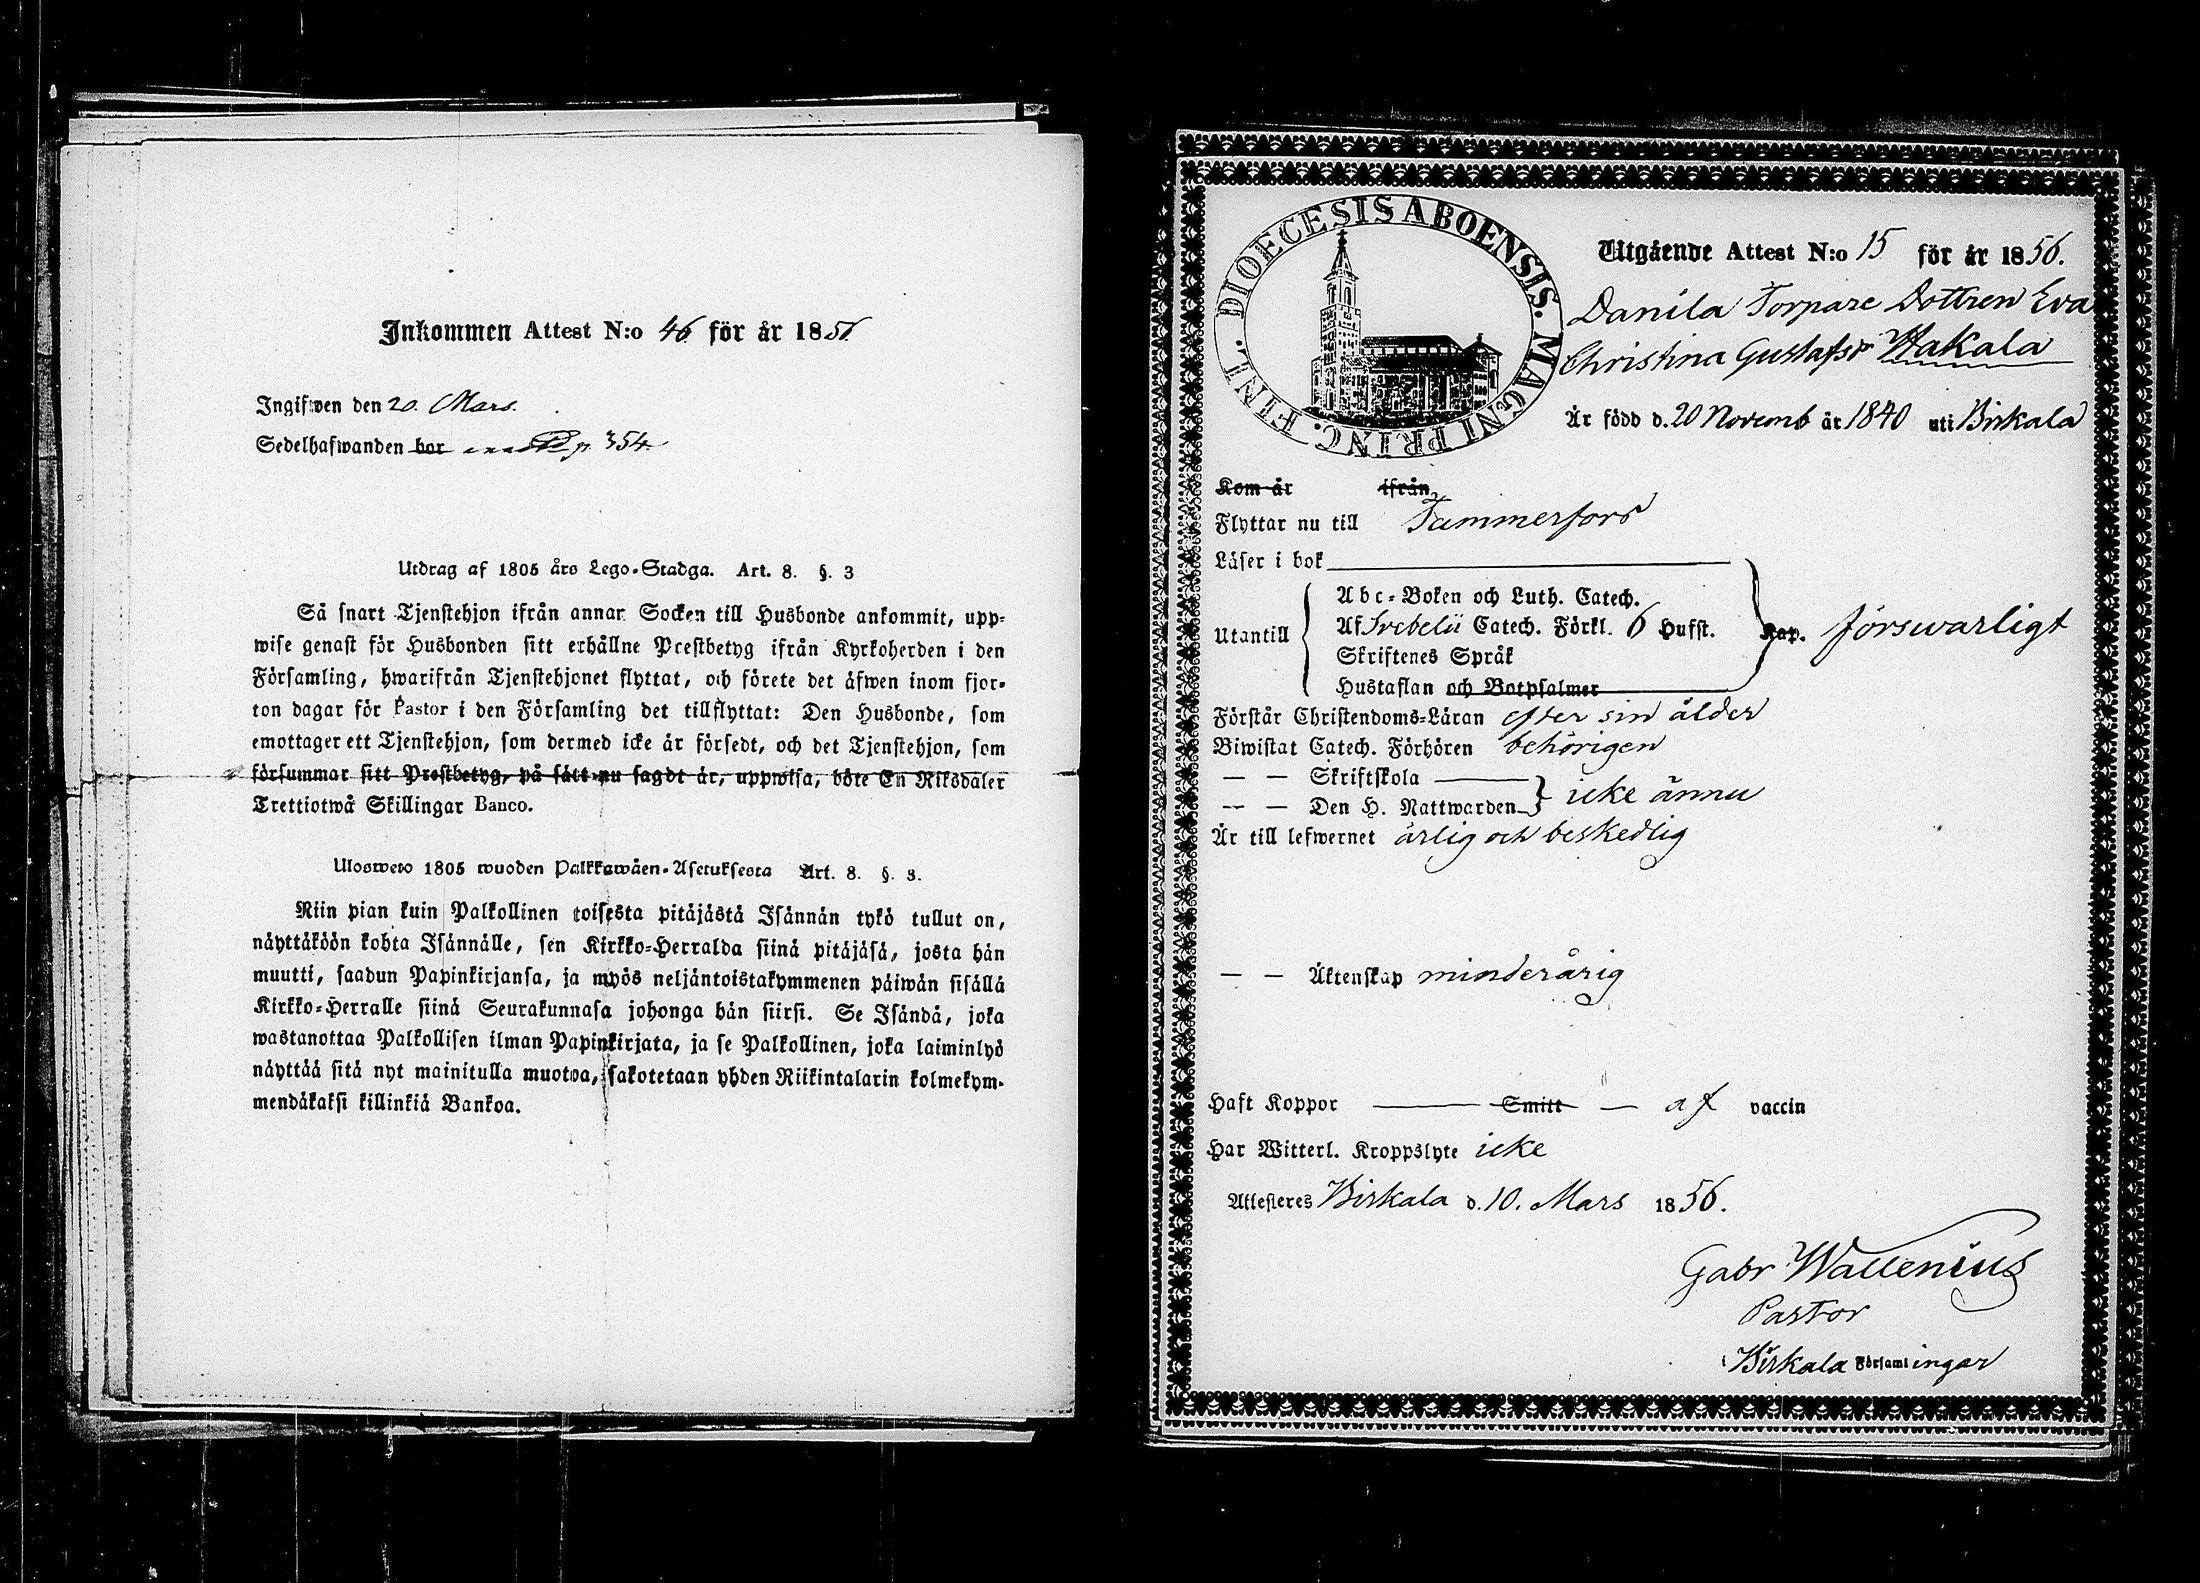 Inkommen Attest N:o 46 för år 1856
Ingifwen den 20. Mars.
Sedelhafwanden bor p. 354
Utdrag af 1805 års Lego-Stadga. Art. 8. §. 3
Så snart Tjenstehjon ifrån annar Socken till Husbonde ankommit, upp-
wise genast för Husbonden sitt erhållne Prestbetyg ifrån Kyrkoherden i den
Församling, hwarifrån Tjenstehjonet flyttat, och förete det äfwen inom fjor-
ton dagar för Pastor i den Församling det tillflyttat: Den Husbonde, som
emottager ett Tjenstehjon, som dermed icke är försedt, och det Tjenstehjon, som
försummar sitt Prestbetyg, på sätt nu sagdt är, uppwisa, böte En Riksdaler
Trettiotwå Skillingar Banco.
Ulosweto 1805 wuoden Palkkawäen-Asetuksesta Art. 8. §. 3.
Niin pian kuin Palkollinen toisesta pitäjästä Isännän tykö tullut on,
näyttäköön kohta Isännälle, sen Kirkko-Herralda siinä pitäjäsä, josta hän
muutti, saadun Papinkirjansa, ja myös neljäntoistakymmenen päiwän sisällä
Kirkko-Herralle siinä Seurakunnasa johonga hän siirsi. Se Isändä, joka
wastanottaa Palkollisen ilman Papinkirjata, ja se Palkollinen, joka laiminlyö
näyttää sitä nyt mainitulla muotoa, sakotetaan yhden Riikintalarin kolmekym-
mendäkaksi killinkiä Bankoa.
DIOECESIS ABOENSIS. MAGNI PRINC. FINL.
Utgående Attest N:o 15 för år 1856.
Danila Torpare Dottren Eva
Christina Gustafsdr Hakala
Är född d. 20 Novemb år 1840 uti Birkala
Kom år ifrån
Flyttar nu till Tammerfors
Läser i bok
Utantill
Abc-Boken och Luth. Catech.
Af Svebelii Catech. Förkl. 6 Hufst.
Skriftenes Språk
Hustaflan och Botpsalmer
Kap. försvarligt
Förstår Christendoms-Läran efter sin ålder
Biwistat Catech. Förhören behörigen
— — Skriftskola
— — Den H. Nattwarden icke ännu
Är till lefwernet ärlig och beskedlig
— — Äktenskap minderårig
Haft Koppor Smitt af vaccin
Har Witterl. Kroppslyte icke
Attesteres Birkala d. 10. Mars 1856.
Gabr Wallenius
Pastor
i Birkala Församlingar